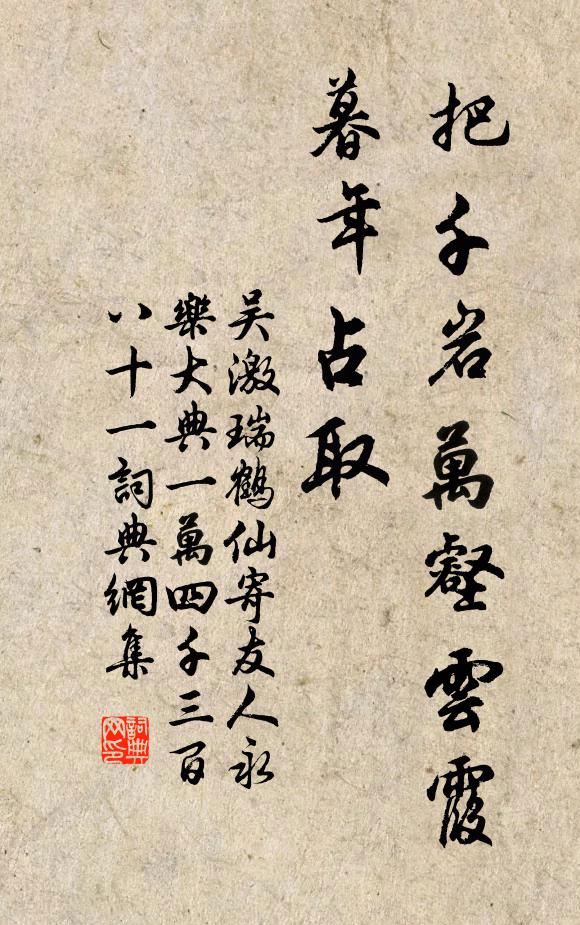 把千岩萬壑雲霞
暮年占取
吴激瑞鶴仙寄友人永
樂大典一萬四千三百
八十一詞典網集
詞典網印